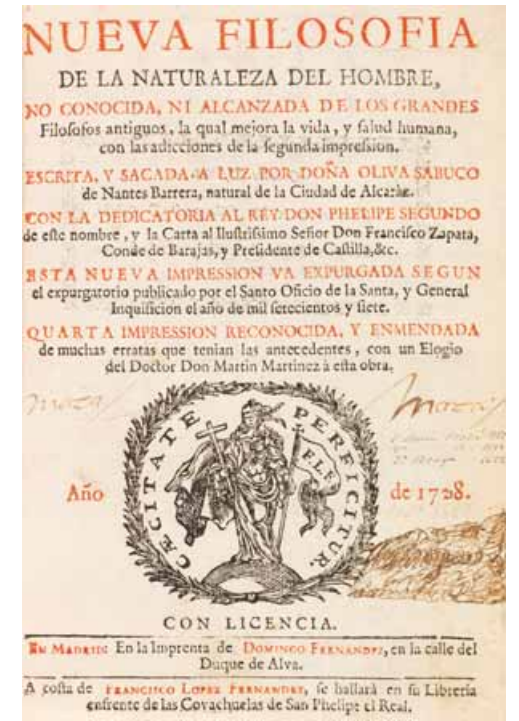 NUEVA FILOSOFIA
DE LA NATURALEZA DEL HOMBRE,
NO CONOCIDA, NI ALCANZADA DE LOS GRANDES
Filosofos antiguos, la qual mejora la vida, y salud humana,
con las adicciones de la segunda impression.
ESCRITA, Y SACADA A LUZ POR DOÑA OLIVA SABUCO
de Nantes Barrera, natural de la Ciudad de Alcaràz.
CON LA DEDICATORIA AL REY DON PHELIPE SEGUNDO
de este nombre, y la Carta al Ilustrissimo Señor Don Francisco Zapata,
Conde de Barajas, y Presidente de Castilla, &c.
ESTA NUEVA IMPRESSION VA EXPURGADA SEGUN
el expurgatorio publicado por el Santo Oficio de la Santa, y General
Inquisicion el año de mil setecientos y siete.
QUARTA IMPRESSION RECONOCIDA, Y ENMENDADA
de muchas erratas que tenian las antecedentes, con un Elogio
del Doctor Don Martin Martinez à esta obra.
CÆCITATE PERFICITUR.
Año de 1728.
CON LICENCIA.
EN MADRID: En la Imprenta de DOMINGO FERNANDEZ, en la calle del
Duque de Alva.
A costa de FRANCISCO LOPEZ FERNANDEZ, se hallarà en su Libreria
enfrente de las Covachuelas de San Phelipe el Real.